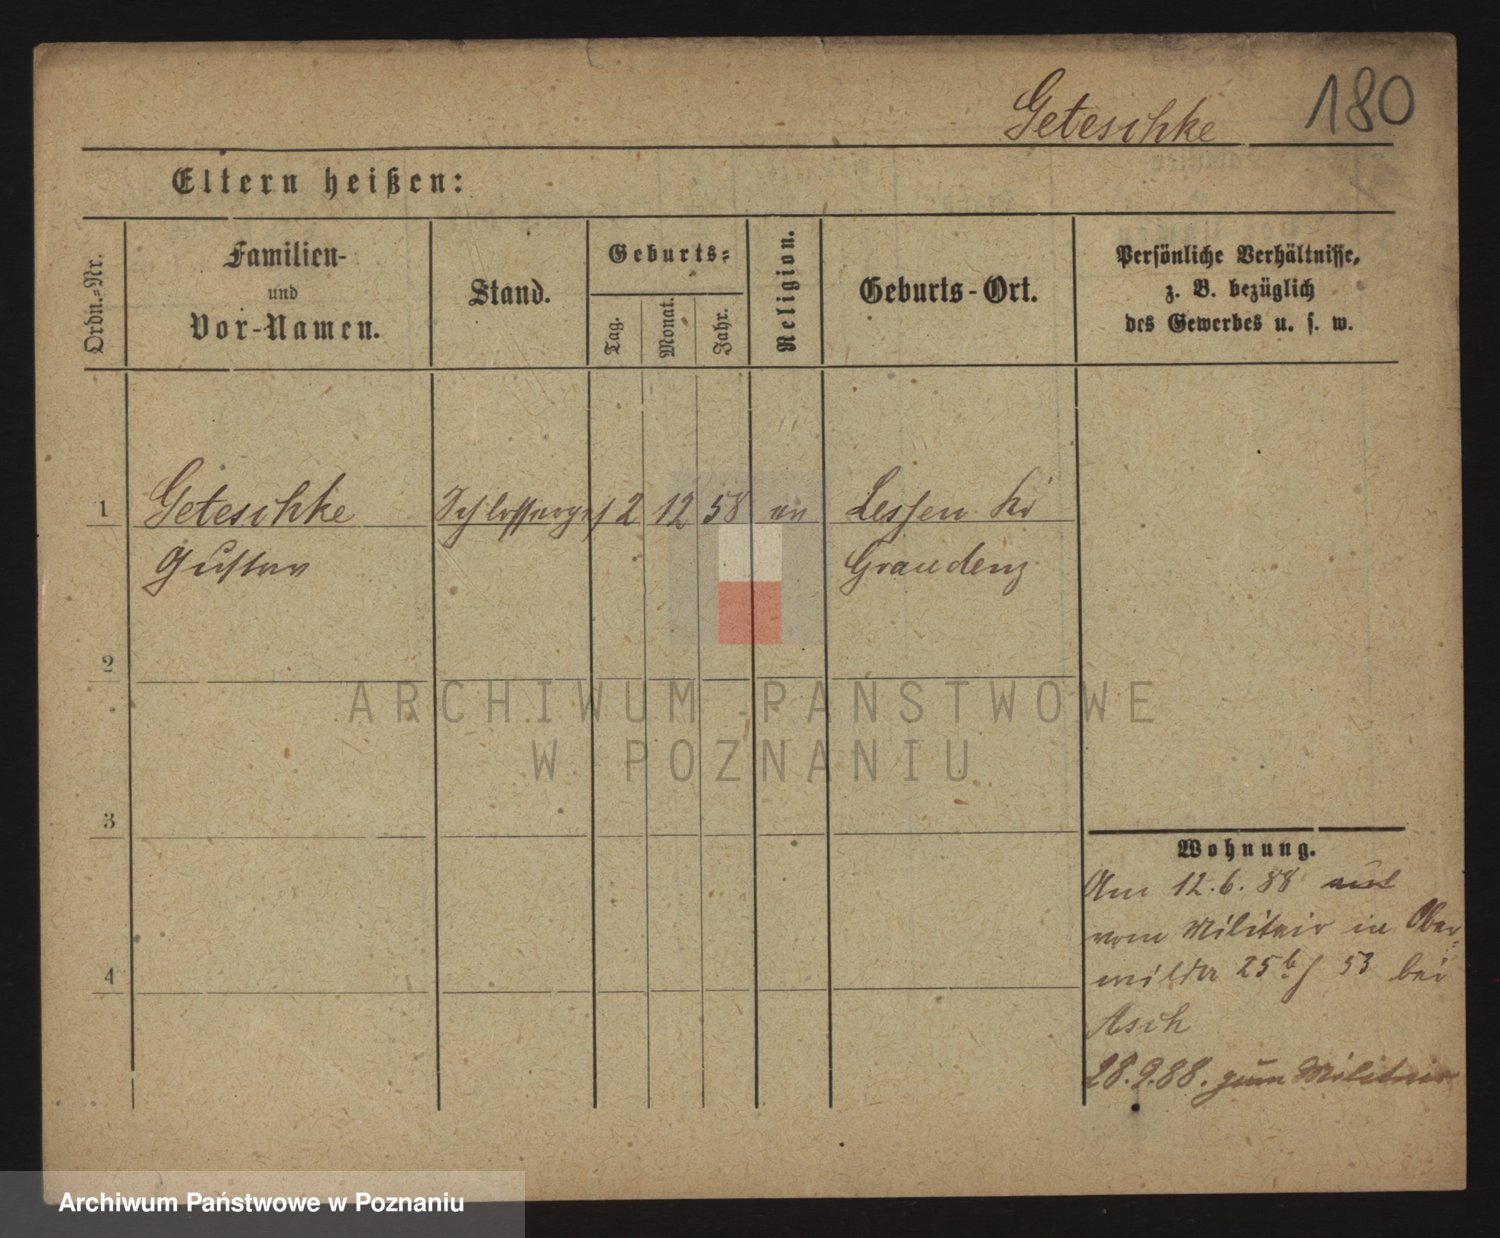 Geteschke 180
Eltern heißen:
Ordn.-Nr.
Familien-
und
Vor-Namen.
Stand.
Geburts-
Tag.
Monat.
Jahr.
Religion.
Geburts-Ort.
Persönliche Verhältnisse,
z. B. bezüglich
des Gewerbes u. s. w.
1 Geteschke Schlosserges 2 12 58 ev Lessen Kr
Gustav Graudenz
2
3
4
Wohnung.
Am 12.6.88
vom Militair in Ober
wilda 25 53 bei
Asch
28.9.88. zum Militair
ARCHIWUM PAŃSTWOWE
W POZNANIU
Archiwum Państwowe w Poznaniu